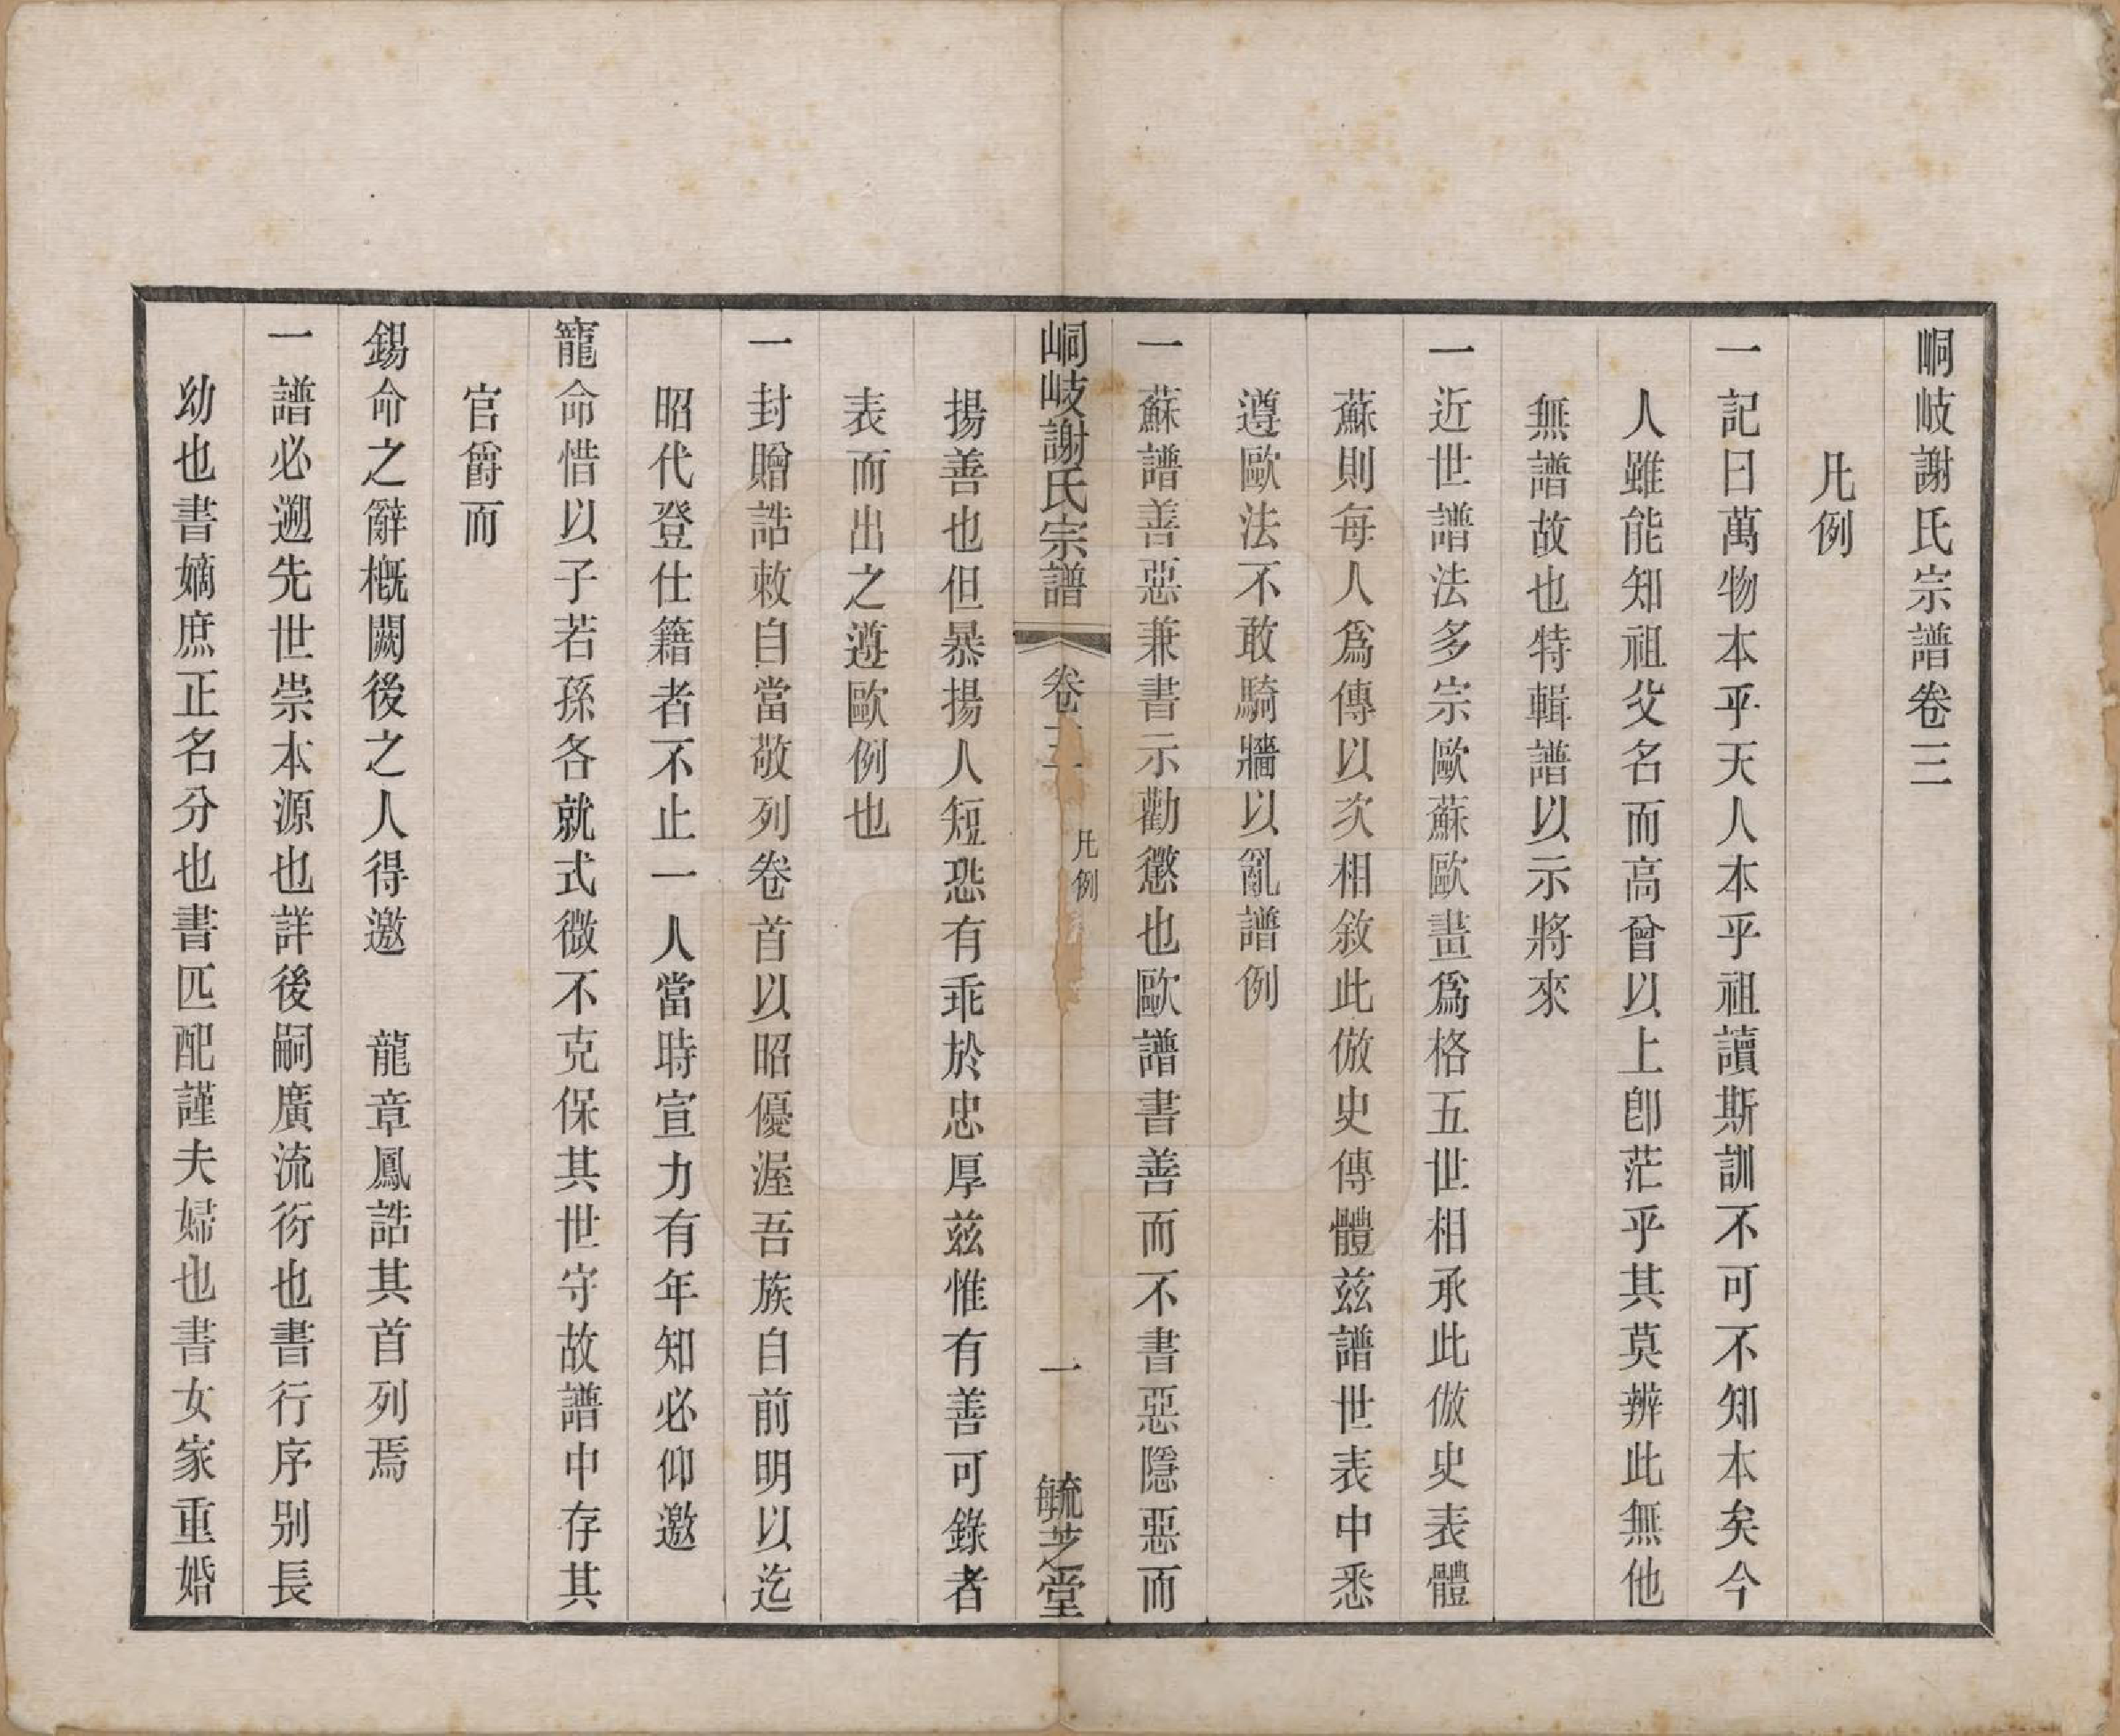 峒岐謝氏宗譜卷三
凡例
一記曰萬物本乎天人本乎祖讀斯訓不可不知本矣今
人雖能知祖父名而高曾以上卽茫乎其莫辨此無他
無譜故也特輯譜以示將來
一近世譜法多宗歐蘇歐畫爲格五世相承此倣史表體
蘇則每人爲傳以次相敘此倣史傳體茲譜世表中悉
遵歐法不敢騎牆以亂譜例
一蘇譜善惡兼書示勸懲也歐譜書善而不書惡隱惡而
峒岐謝氏宗譜 卷三 凡例 一 毓芝堂
揚善也但暴揚人短恐有乖於忠厚茲惟有善可錄者
表而出之遵歐例也
一封贈誥敕自當敬列卷首以昭優渥吾族自前明以迄
昭代登仕籍者不止一人當時宣力有年知必仰邀
寵命惜以子若孫各就式微不克保其世守故譜中存其
官爵而
錫命之辭槪闕後之人得邀 龍章鳳誥其首列焉
一譜必遡先世崇本源也詳後嗣廣流衍也書行序別長
幼也書嫡庶正名分也書匹配謹夫婦也書女家重婚